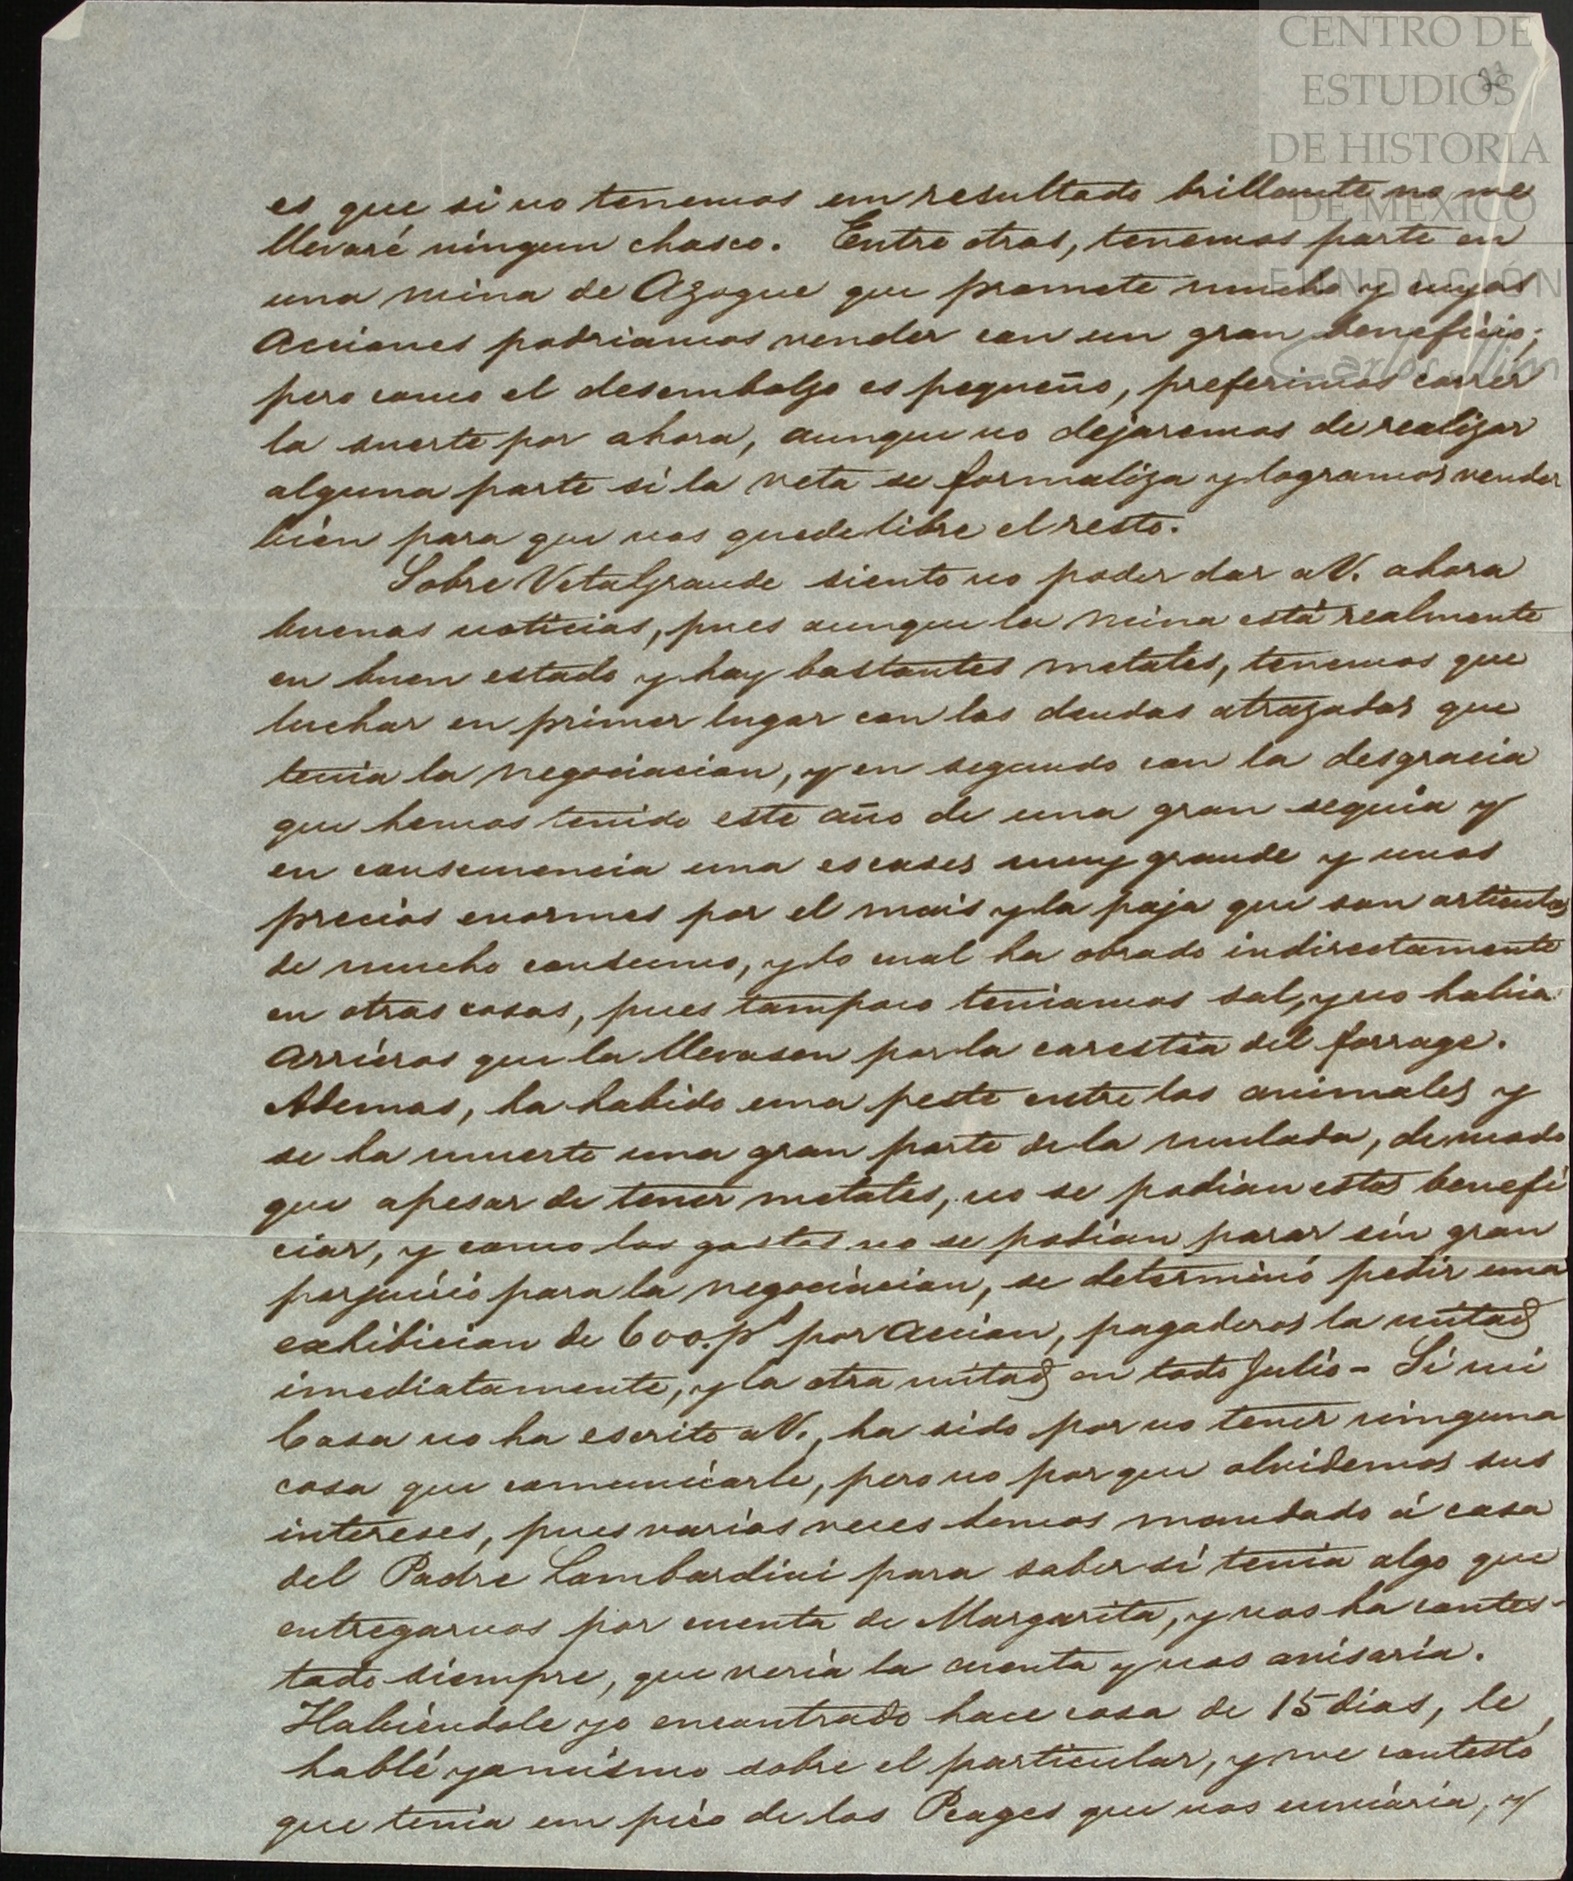 CENTRO DE
ESTUDIOS
DE HISTORIA
DE MÉXICO
FUNDACIÓN
Carlos Slim
es que si no tenemos un resultado brillante no me
llevaré ningun chasco. Entre otras, tenemos parte en
una mina de Azogue que promete mucho y cuyas
Acciones podriamos vender con un gran beneficio;
pero como el desembolzo es pequeño, preferimos correr
la suerte por ahora, aunque no dejaremos de realizar
alguna parte si la veta se formaliza y logramos vender
bien para que nos quede libre el resto.
Sobre VetaGrande siento no poder dar a V. ahora
buenas noticias, pues aunque la mina está realmente
en buen estado y hay bastantes metales, tenemos que
luchar en primer lugar con las deudas atrazadas que
tenia la negociacion, y en segundo con la desgracia
que hemos tenido este año de una gran sequia y
en consecuencia una escases muy grande y unos
precios enormes por el mais y la paja que son articulos
de mucho consumo, y lo cual ha obrado indirectamente
en otras cosas, pues tampoco teniamos sal, y no habia
Arrieros que la llevasen por la carestia del forrage.
Ademas, ha habido una peste entre los animales y
se ha muerto una gran parte de la mulada, de modo
que apesar de tener metales, no se podian estos benefi
ciar, y como los gastos no se podian parar sin gran
perjuicio para la negociacion, se determinó pedir una
exhibicion de 600.ps por Accion, pagaderos la mitad
imediatamente, y la otra mitad en todo Julio - Si mi
Casa no ha escrito a V., ha sido por no tener ninguna
cosa que comunicarle, pero no por que olvidemos sus
intereses, pues varias veces hemos mandado á casa
del Padre Lombardini para saber si tenia algo que
entregarnos por cuenta de Margarita, y nos ha contes-
tado siempre, que veria la cuenta y nos avisaria.
Habiendole yo encontrado hace cosa de 15 dias, le
hablé yo mismo sobre el particular, y me contestó
que tenia un pico de los Peages que nos enviaria, y